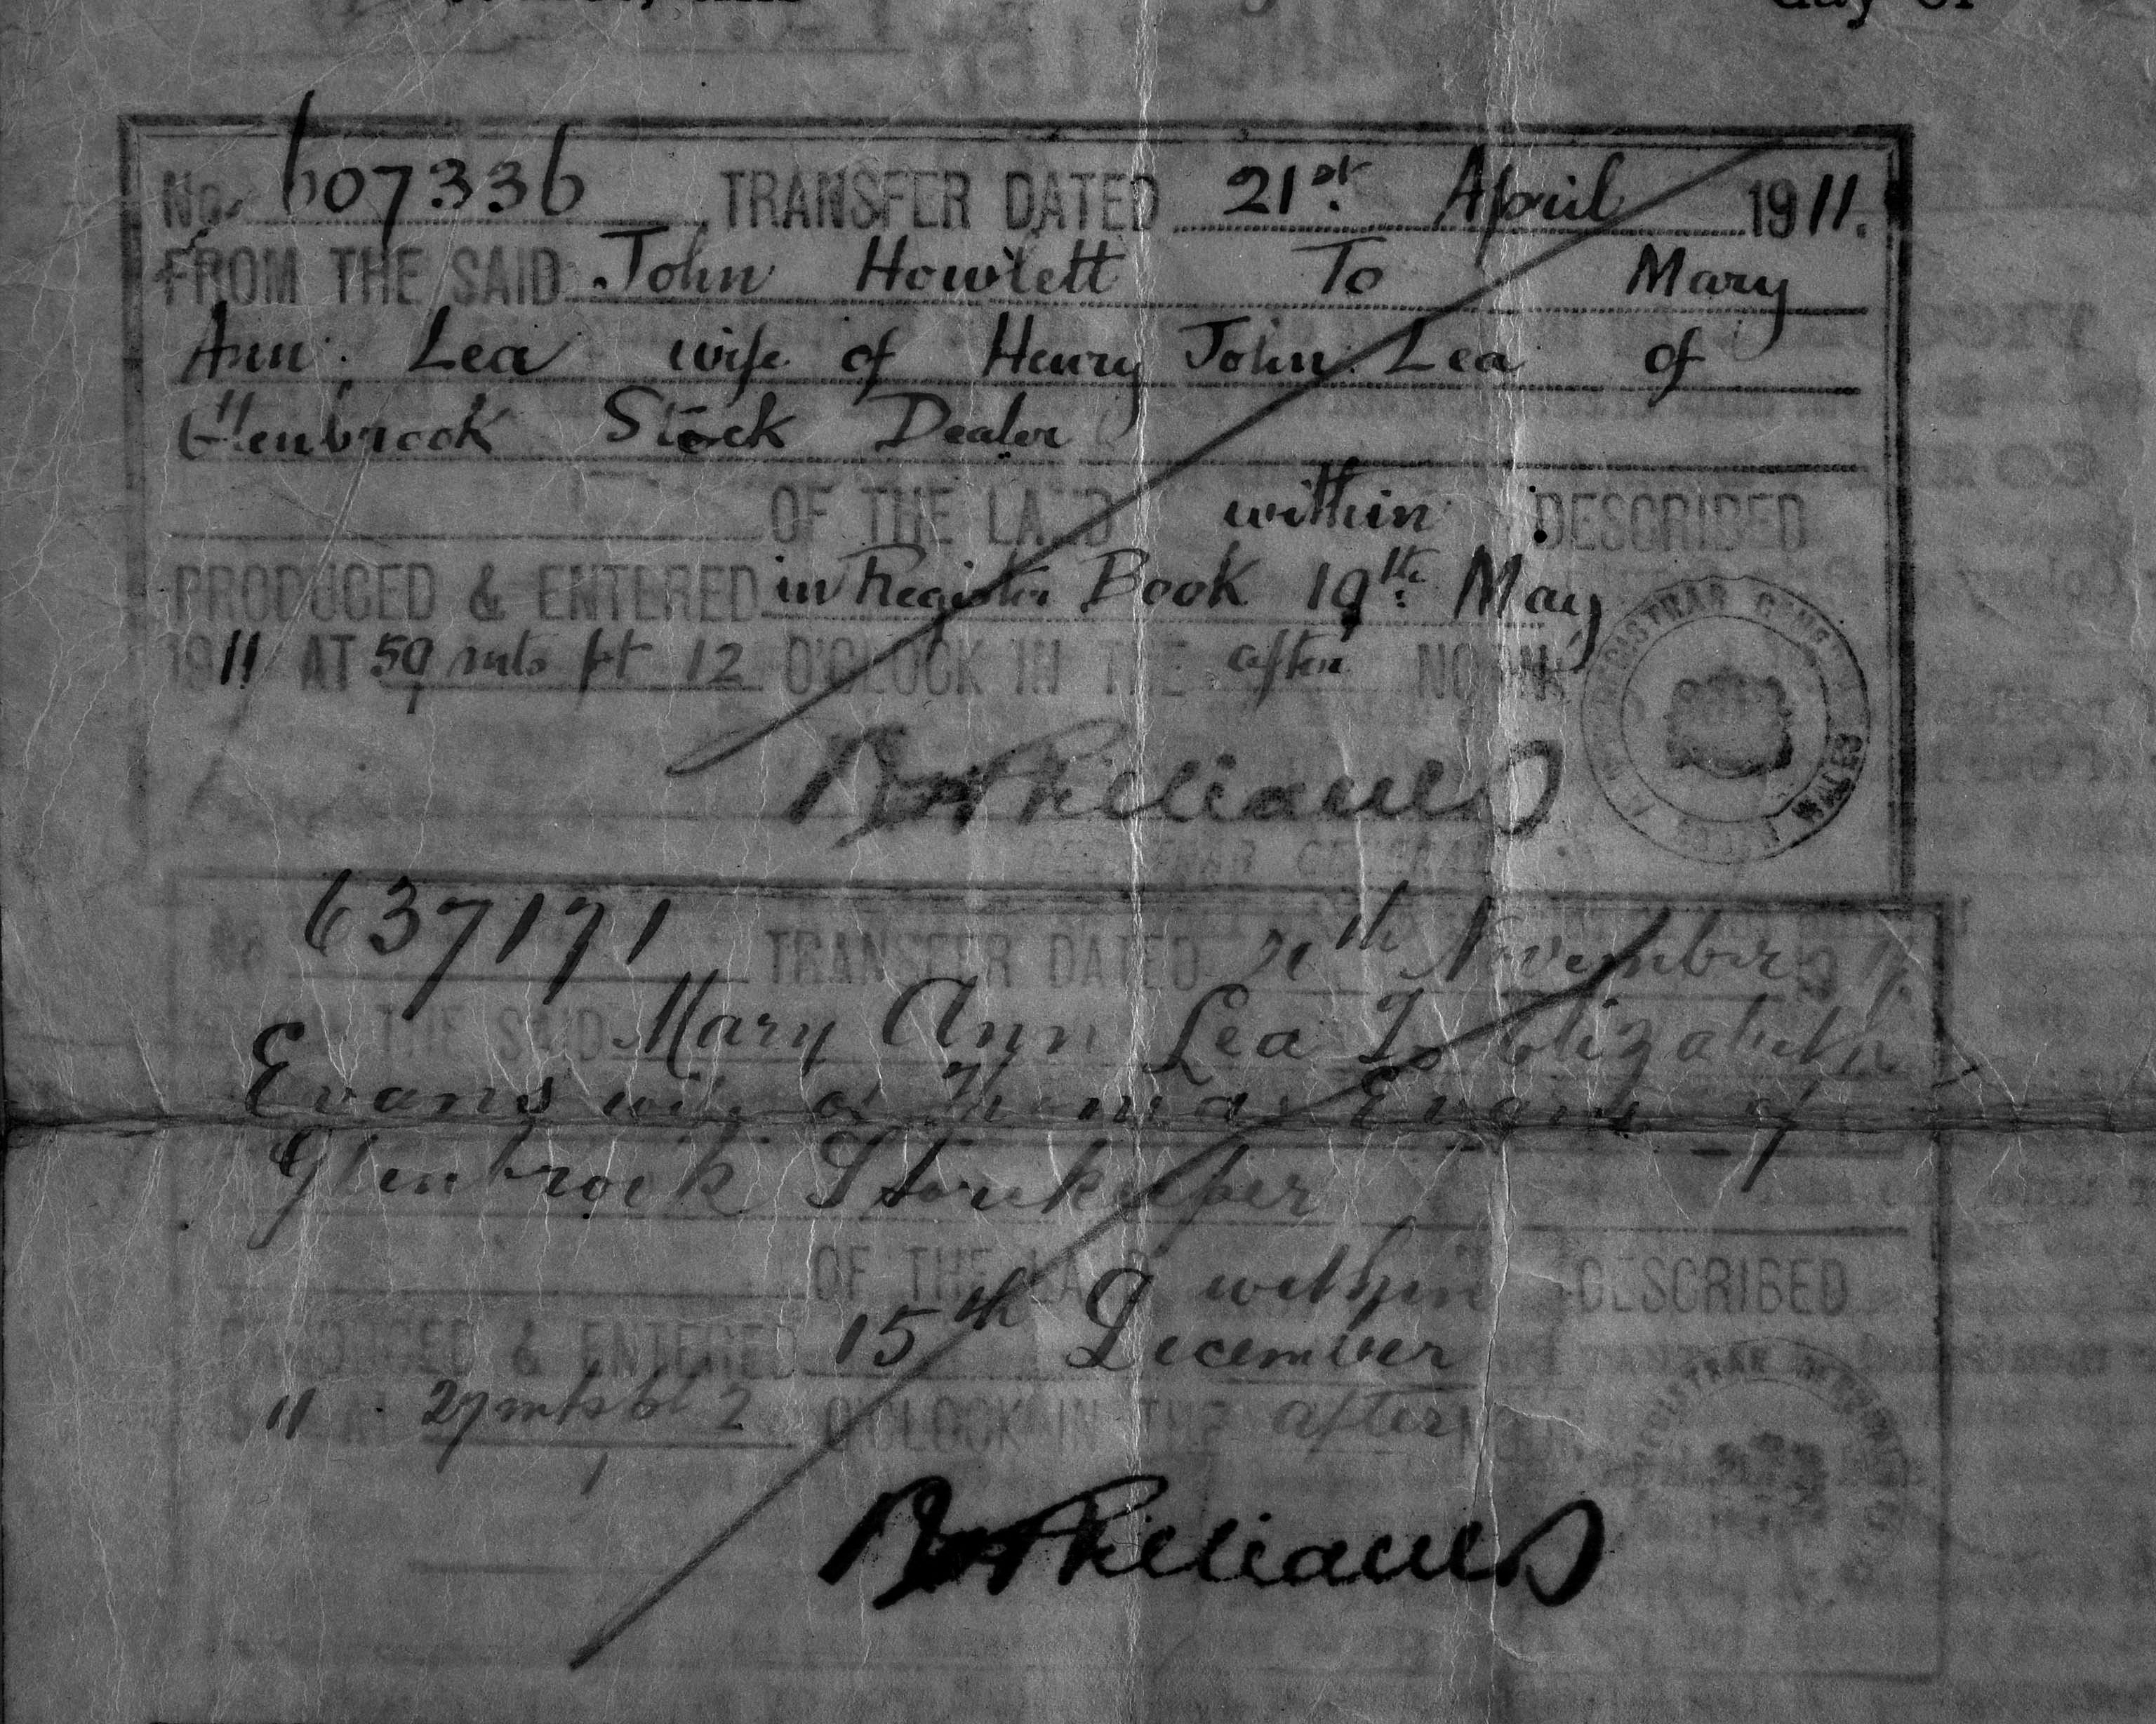 day of
No. 607336 TRANSFER DATED 21st. April 1911.
FROM THE SAID John Howlett To Mary
Ann Lea wife of Henry John Lea of
Glenbrook Stock Dealer
OF THE LAND within DESCRIBED
PRODUCED & ENTERED in Register Book 19th May
1911 AT 59 mts pt 12 O'CLOCK IN THE after NOON
REGISTRAR GENERAL
REGISTRAR GENERAL
No 637171 TRANSFER DATED November
THE SAID Mary Ann Lea To Elizabeth
Evans wife of Thomas Evans of
Glenbrook Storekeeper
OF THE LAND within DESCRIBED
PRODUCED & ENTERED 15th December
11 AT 27 mts pt 2 O'CLOCK IN THE after NOON
REGISTRAR GENERAL